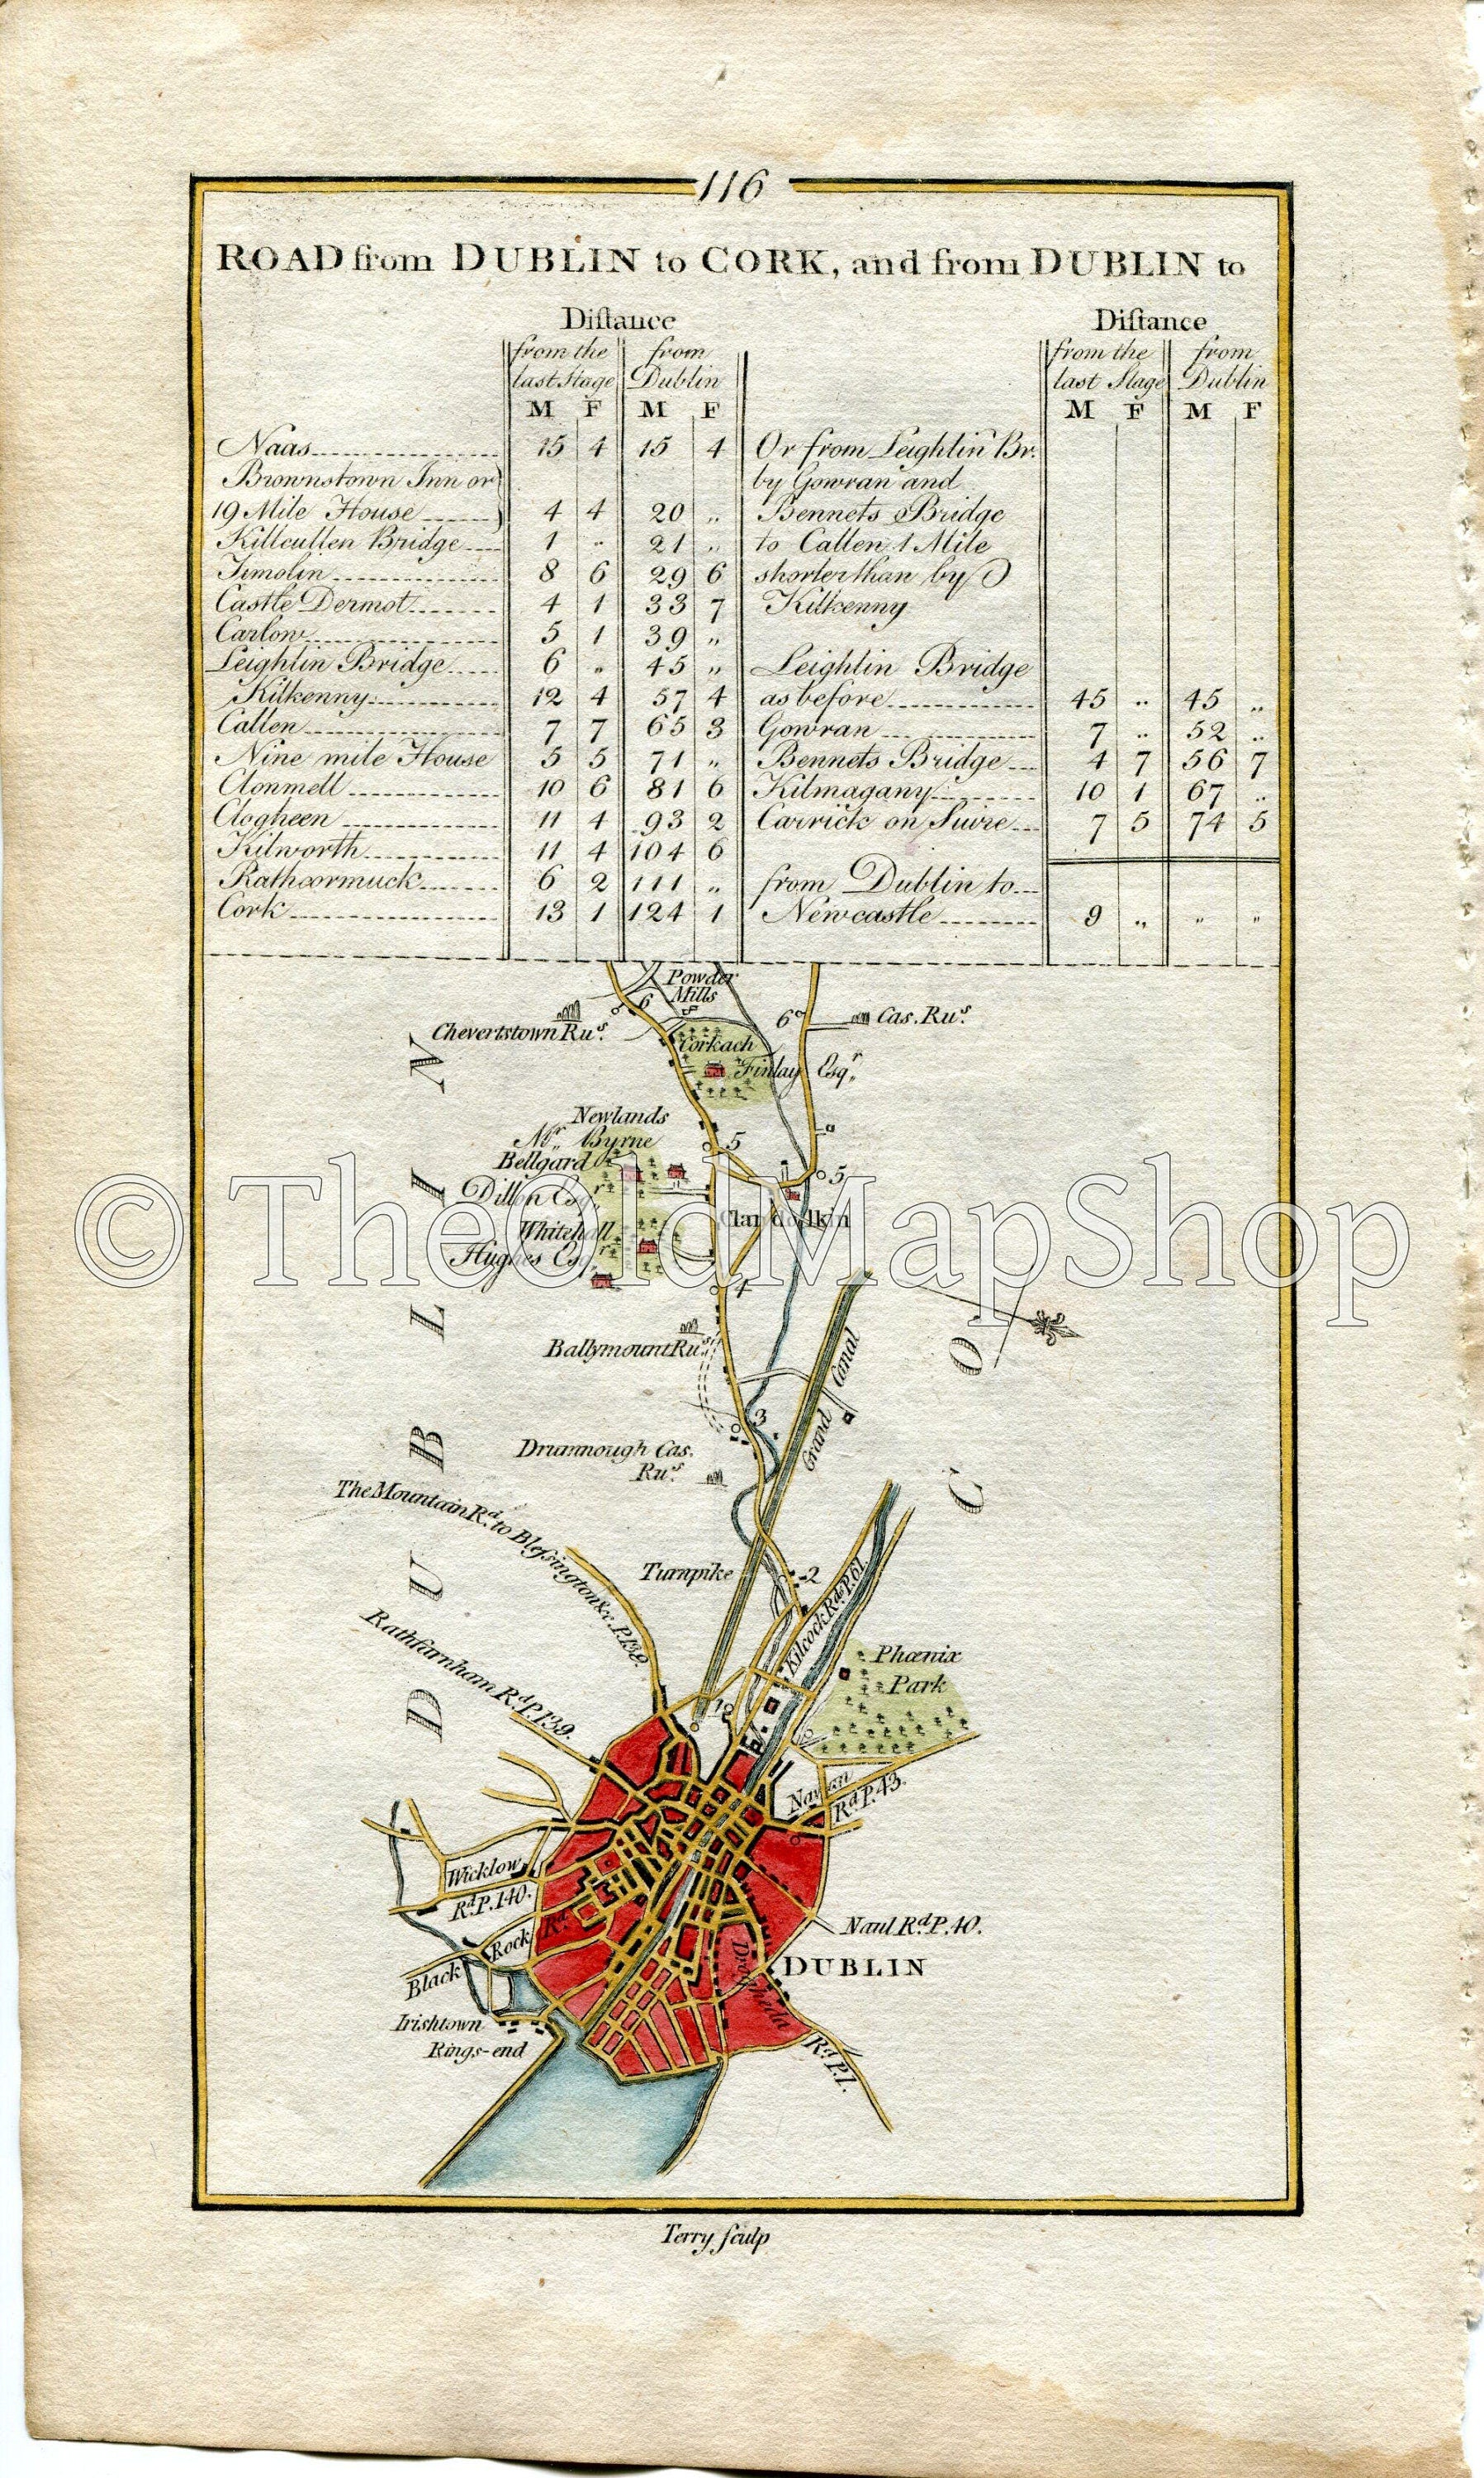 116
ROAD from DUBLIN to CORK, and from DUBLIN to
Diſtance
from the last Stage
from Dublin
M F M F
Naas 15 4 15 4
Brownstown Inn or
19 Mile House 4 4 20 ,,
Killcullen Bridge 1 ,, 21 ,,
Timolin 8 6 29 6
Castle Dermot 4 1 33 7
Carlow 5 1 39 ,,
Leighlin Bridge 6 ,, 45 ,,
Kilkenny 12 4 57 4
Callen 7 7 65 3
Nine mile House 5 5 71 ,,
Clonmell 10 6 81 6
Clogheen 11 4 93 2
Kilworth 11 4 104 6
Rathcormuck 6 2 111 ,,
Cork 13 1 124 1
Diſtance
from the last Stage
from Dublin
M F M F
Or from Leighlin Br.
by Gowran and
Bennets Bridge
to Callen 1 Mile
shorter than by
Kilkenny
Leighlin Bridge
as before 45 ,, 45 ,,
Gowran 7 ,, 52 ,,
Bennets Bridge 4 7 56 7
Kilmagany 10 1 67 ,,
Carrick on Suire 7 5 74 5
from Dublin to
Newcastle 9 ,, ,, ,,
Powder
Mills
6
6
Cas. Rus.
Chevertstown Rus.
Corkach
Finlay Esqr.
Newlands
Mr. Byrne
5
Bellgard
5
Dillon Esqr.
Clandolkin
Whitehall
Hughes Esqr.
© TheOldMapShop
4
Ballymount Rus.
Grand Canal
3
Drumnough Cas.
Rus.
The Mountain Rd. to Bleſsington &c. P.138.
Turnpike
2
Kilcock Rd. P.61.
Rathfarnham Rd. P.139.
Phœnix
Park
1
Navan
Rd. P.43.
Wicklow
Rd. P.140.
Black Rock Rd.
Naul Rd. P.40.
DUBLIN
Drogheda
Rd. P.1.
Irishtown
Rings-end
CO.
DUBLIN
Terry ſculp